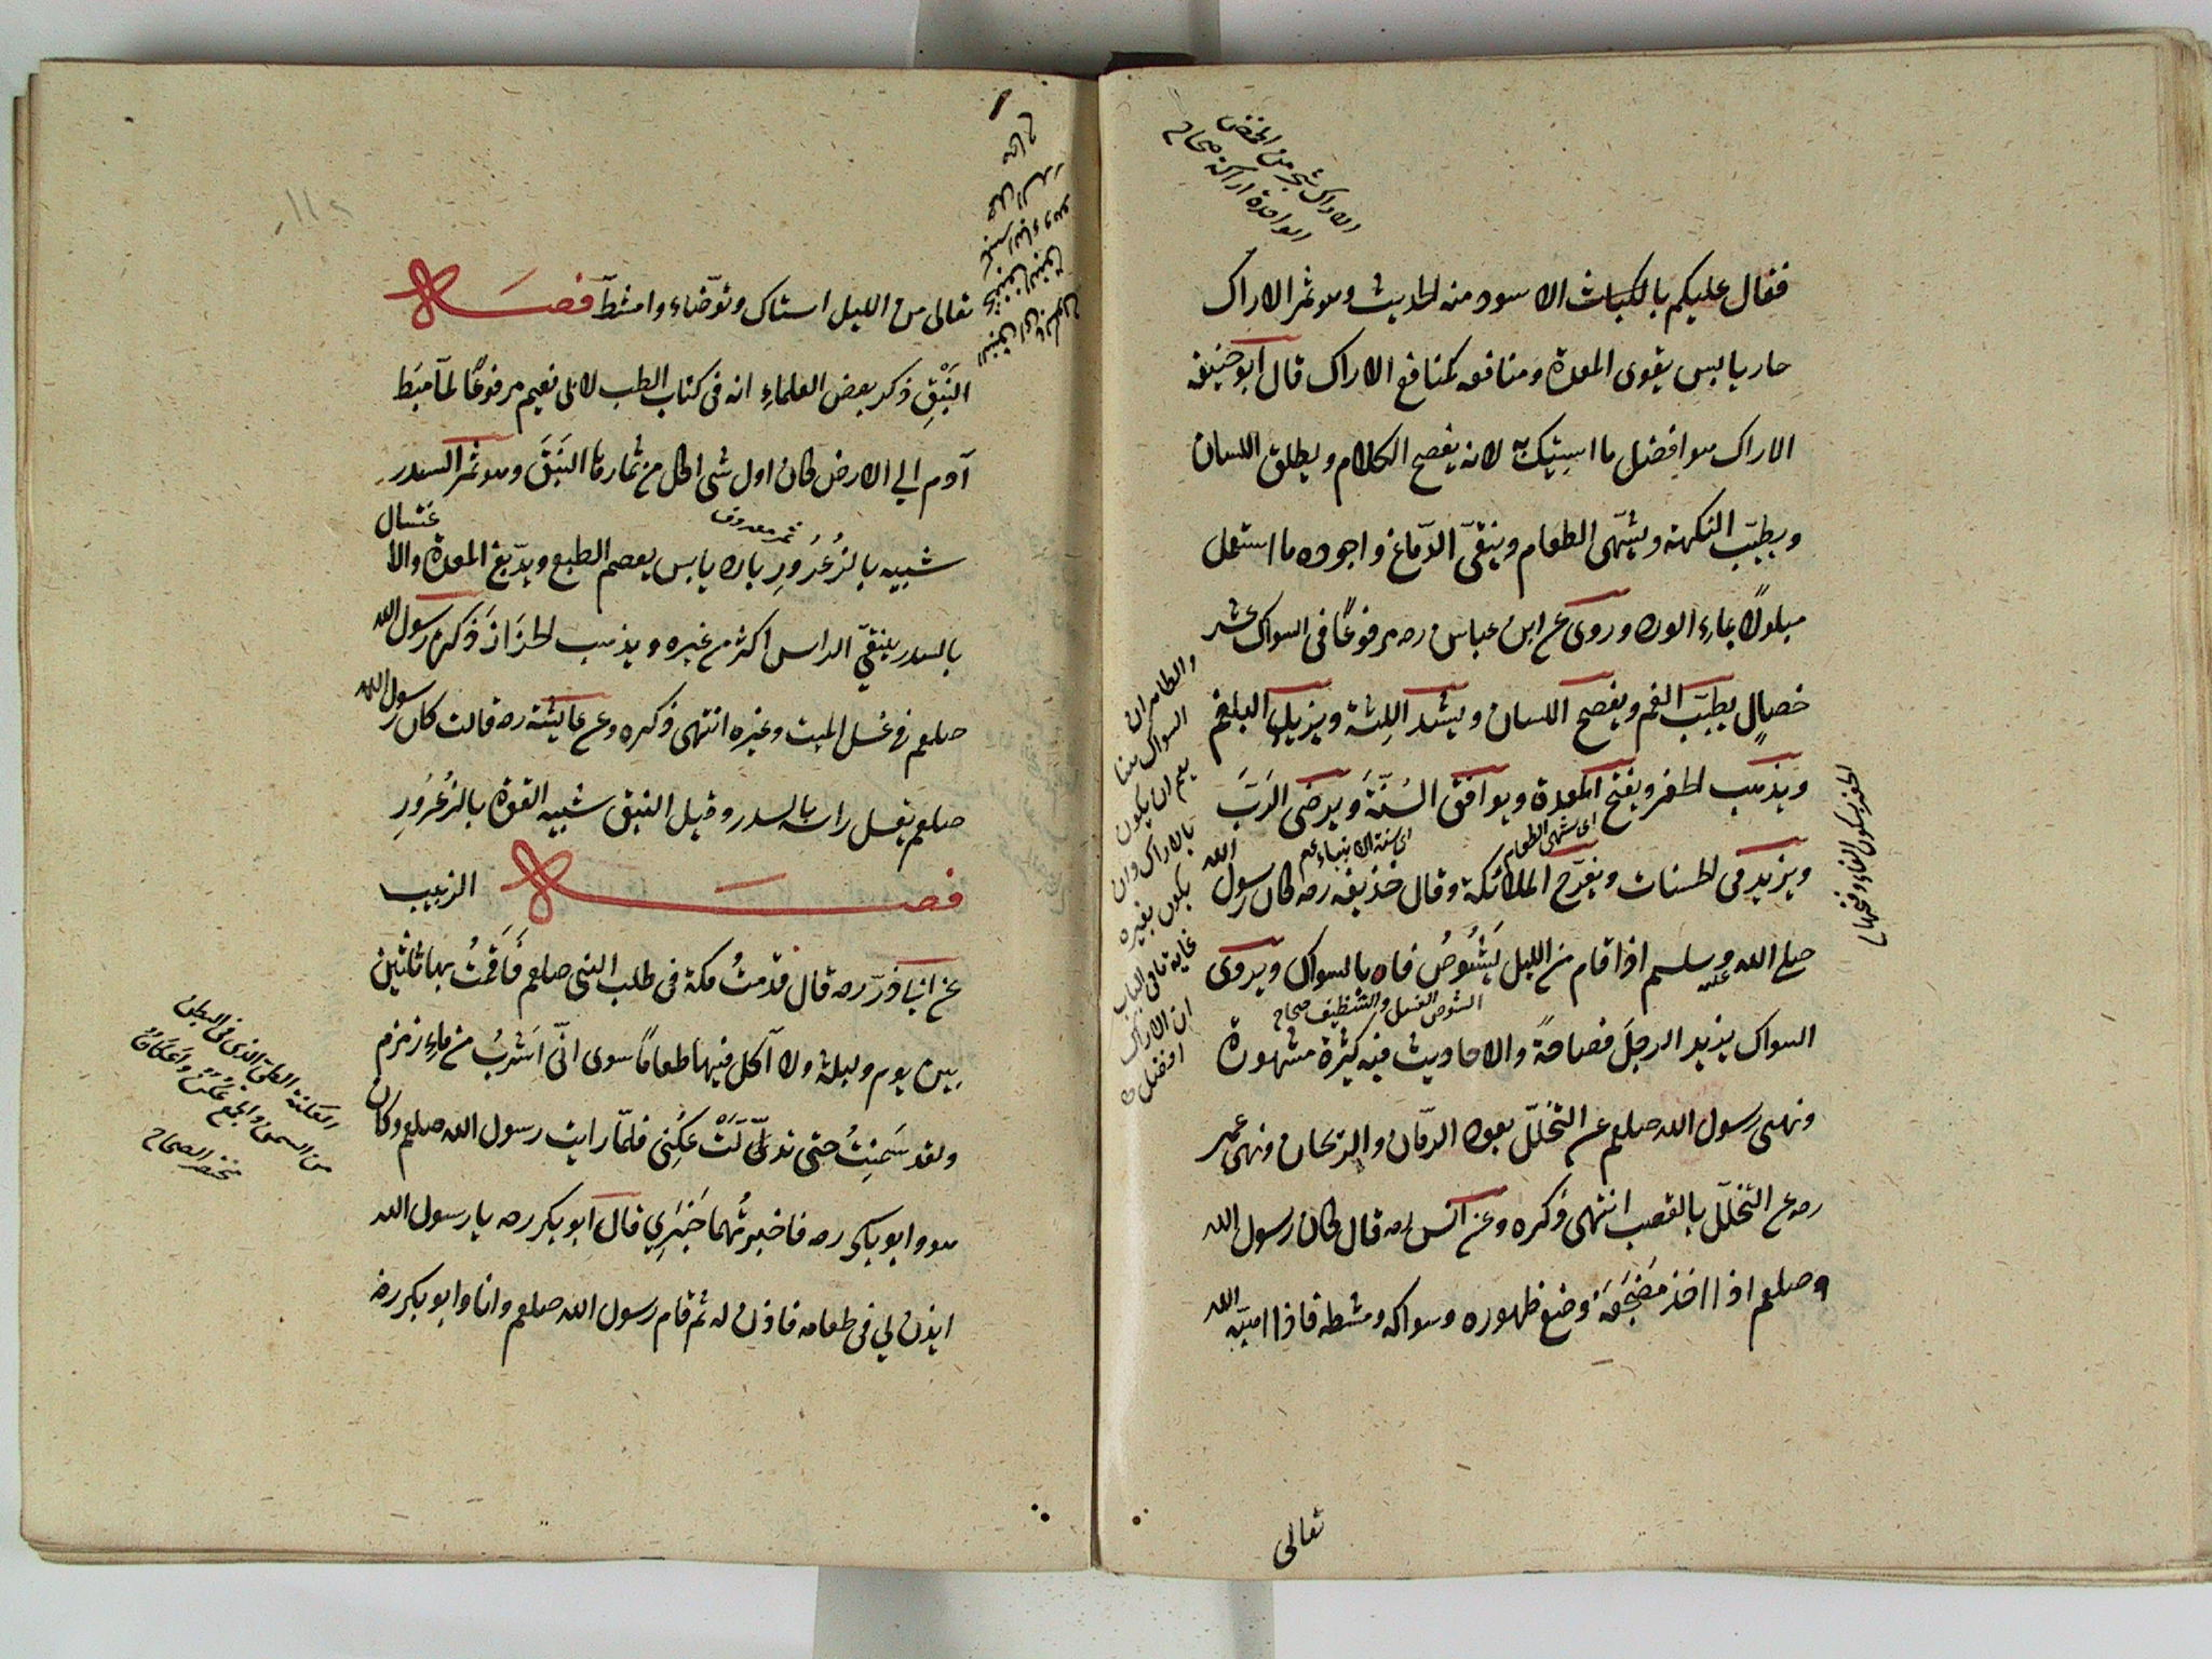 فقال عليكم بالكباث الاسود منه الحديث وهو ثمر الاراك
حار يابس يقوى المعدة ومنافعه كمنافع الاراك قال ابو حنيفه
الاراك هو افضل ما استيك به لانه يفصح الكلام ويطلق اللسان
ويطيّب النكهة ويشهّى الطعام وينقّى الدّماغ واجوده ما استعمل
مبلولًا بماءِ الورد وروى عن ابن عباس رضه مرفوعًا فى السواك عشر
خصالٍ يطيّب الفم ويفصح اللسان ويشد اللِثة ويزيل البلغم
ويذهب الحفر ويفتح المعدة ويوافق السُنّةَ ويرضى الرَبَّ
اى يشهى الطعام
اى سنة الانبياء عم
ويزيد فى الحسنات ويفرّح الملائكة وقال حذيفه رضه كان رسول الله
صلى الله عليه وسلم اذا قام من الليل يَشُوصُ فاه بالسواك ويروى
الشوص الغسل والتنظيف صحاح
السواك يزيد الرجلَ فصاحةً والاحاديث فيه كثيرة مشهورة
ونهى رسول الله صلعم عن التخلّل بعود الرمّان والريحان ونهى عمر
رضه عن التخلّل بالقصب انتهى ذكره وعن انس رضه قال كان رسول الله
صلعم اذا اخذ مَضْجَعَهُ وضع طهوره وسواكه ومشطه فاذا اهبّه الله
تعالى
الاراك شجر من الحمض
الواحدة اراكة صحاح
الحفر بسكون الفاء وفتحها
والظاهر ان
السواك هنا
يعم ان يكون
بالاراك وان
يكون بغيره
غاية ما فى الباب
ان الاراك
افضل
تعالى من الليل استاك وتوضّاء وامشطّ فصل
النَبْقِ ذكر بعض العلماءِ انه فى كتاب الطب لابى نعيم مرفوعًا لمّا هبَط
آدم الى الارض كان اول شى اكل من ثمارها النَبَقَ وهو ثمر السدر
ثمر معروف
شبيه بالزُعْرُورِ بارد يابس يعصم الطبع ويدبغ المعدة والاغتسال
بالسدر ينقّي الراس اكثر من غيره ويذهب الحَزَازَ ذكره رسول الله
صلعم فى غسل الميت وغيره انتهى ذكره وعن عايشة رضه قالت كان رسول الله
صلعم يغسل راسه بالسدر وقيل النبق شبيه القوة بالزُعْرُورِ
فصل الزبيب
عن ابى ذرّ رضه قال قدمتُ مكة فى طلب النبى صلعم فَاَقَمْتُ بها ثلثين
بين يوم وليلة ولا آكل فيها طعامًا سوى انّى اَشْرَبُ من ماءِ زمزم
ولقد سَمِنْتُ حتى تدلّلَتْ عُكَنِى فلمّا رايت رسول الله صلعم وكان
هو وابو بكر رضه فاخبرتُهما خَبَرِي قال ابو بكر رضه يا رسول الله
ايذن لي فى طعامه فاذن له ثم قام رسول الله صلعم وانا وابو بكر رضه
العكنة الطى الذى فى البطن
من السمن والجمع عُكَنٌ واَعْكَانٌ
مختصر الصحاح